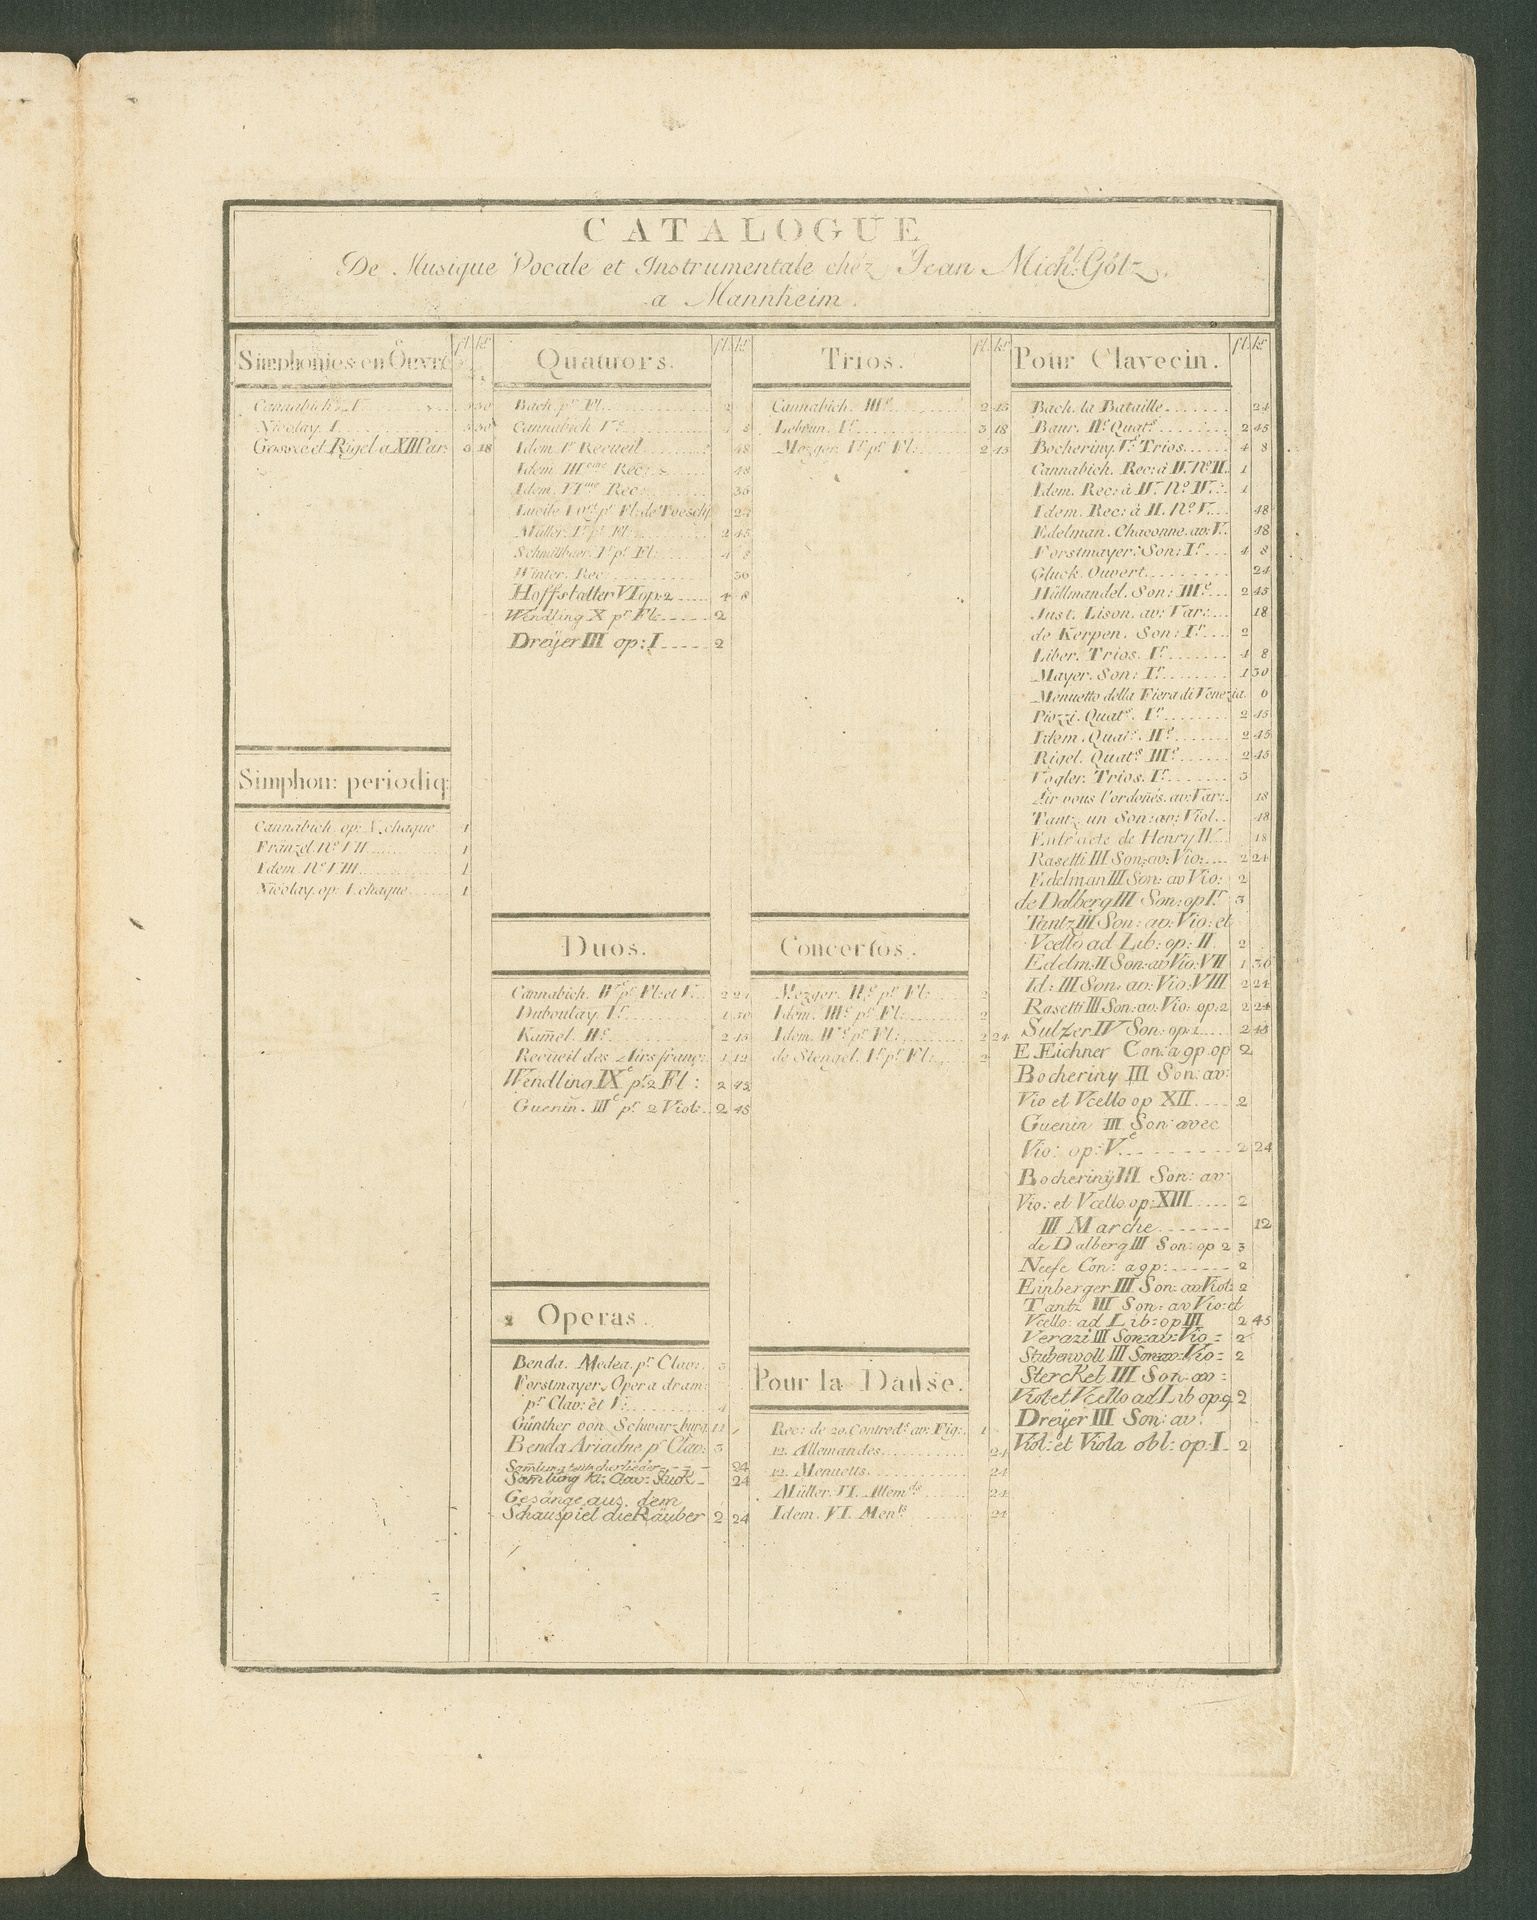 CATALOGUE
De Musique Vocale et Instrumentale chéz Jean Mich:l Götz,
a Mannheim.
Simphonies en Öuvre
fl. kr
Cannabich. V 30
Nicolay. I. 30
Gossec et Rigel a XIII Par: 3 18
Simphon: periodiq:
Cannabich. op: X. chaque 1
Fränzel. No VII 1
Idem. No VIII 1
Nicolay. op: I. chaque 1
Quatuors.
fl. kr
Bach. pr Fl. 2
Cannabich Ve 4 8
Idem. Ir Recueil 48
Idem. IIIeme Rec: 48
Idem. VIme Rec: 36
Lucile Ouv: pr Fl: de Toeschi 24
Müller. Ir pr Fl: 2 45
Schmittbaur. Ir pr Fl: 4 8
Winter. Rec: 36
Hoffstatter VI op: 2 4 8
Wendling X pr Fl: 2
Dreÿer III op: I 2
Duos.
Cannabich. IVe pr Fl: et V. 2 24
Duboulay. Ir 1 30
Kam̄el. IIe 2 45
Recueil des Airs franç: 1 12
Wendling IXe pr 2 Fl: 2 45
Guenin. IIIe pr 2 Viol: 2 45
Operas.
Benda. Medea. pr Clav: 3
Forstmayer. Opera dram:
pr Clav: et V: 4
Günther von Schwarzburg 11
Benda Ariadne pr Clav: 3
Sam̄lung teutscher lieder 24
Sam̄lung kl: Clav: Stück 24
Gesänge aus dem
Schauspiel die Räuber 2 24
Trios.
fl. kr
Cannabich. IIIe 2 45
Lebrun. Ir 3 18
Mezger. Ir pr Fl: 2 45
Concertos.
Mezger. IIe pr Fl: 2
Idem. IIIe pr Fl: 2
Idem. IVe pr Fl: 2 24
de Stengel. Ir pr Fl: 2
Pour la Danse.
Rec: de 20. Contreds av: Fig: 1
12. Allemandes 24
12. Menuetts 24
Müller. VI. Allemds 24
Idem. VI. Ments 24
Pour Clavecin.
fl. kr
Bach. la Bataille 24
Baur. IIe Quats 2 45
Bocheriny. Ve Trios 4 8
Cannabich. Rec: à V. No II. 1
Idem. Rec: à V. No IV. 1
Idem. Rec: à II. No V. 48
Edelman. Chaconne. av: V. 48
Forstmayer. Son: Ir 4 8
Gluck. Ouvert. 24
Hüllmandel. Son: IIIe 2 45
Just. Lison. av: Var: 18
de Kerpen. Son: Ir 2
Liber. Trios. Ir 4 8
Mayer. Son: Ir 1 30
Menuetto della Fiera di Venezia. 6
Piozzi. Quats. Ir 2 45
Idem. Quats. IIe 2 45
Rigel. Quats IIIe 2 45
Vogler. Trios. Ir 3
Air vous l'ordonés. av: Var: 18
Tantz. un Son: av: Viol. 48
Entr'acte de Henry IV 18
Rasetti III Son: av: Vio: 2 24
Edelman III Son: av Vio: 2
de Dalberg III Son: op Ir 3
Tantz III Son: av: Vio: et
Vcello ad Lib: op: II 2
Edelm: II Son: av Vio: VII 1 30
Id: III Son: av: Vio: VIII 2 24
Rasetti III Son: av: Vio: op: 2 2 24
Sulzer IV Son: op: 1 2 45
E Eichner Con: a gp. op 2
Bocheriny III Son: av:
Vio et Vcello op XII 2
Guenin III Son: avec
Vio: op: Ve 2 24
Bocherinÿ III Son: av
Vio: et Vcello op: XIII 2
III Marche 12
de Dalberg III Son: op 2 3
Neefe Con: a gp: 2
Einberger III Son: av Viol: 2
Tantz III Son: av Vio: et
Vcello: ad Lib: op III 2 45
Verazi III Son: av: Vio: 2
Stubenvoll III Son: av: Vio: 2
Sterckel III Son: av:
Viol: et Vcello ad Lib op: 9 2
Dreÿer III Son: av:
Viol: et Viola obl: op: I 2